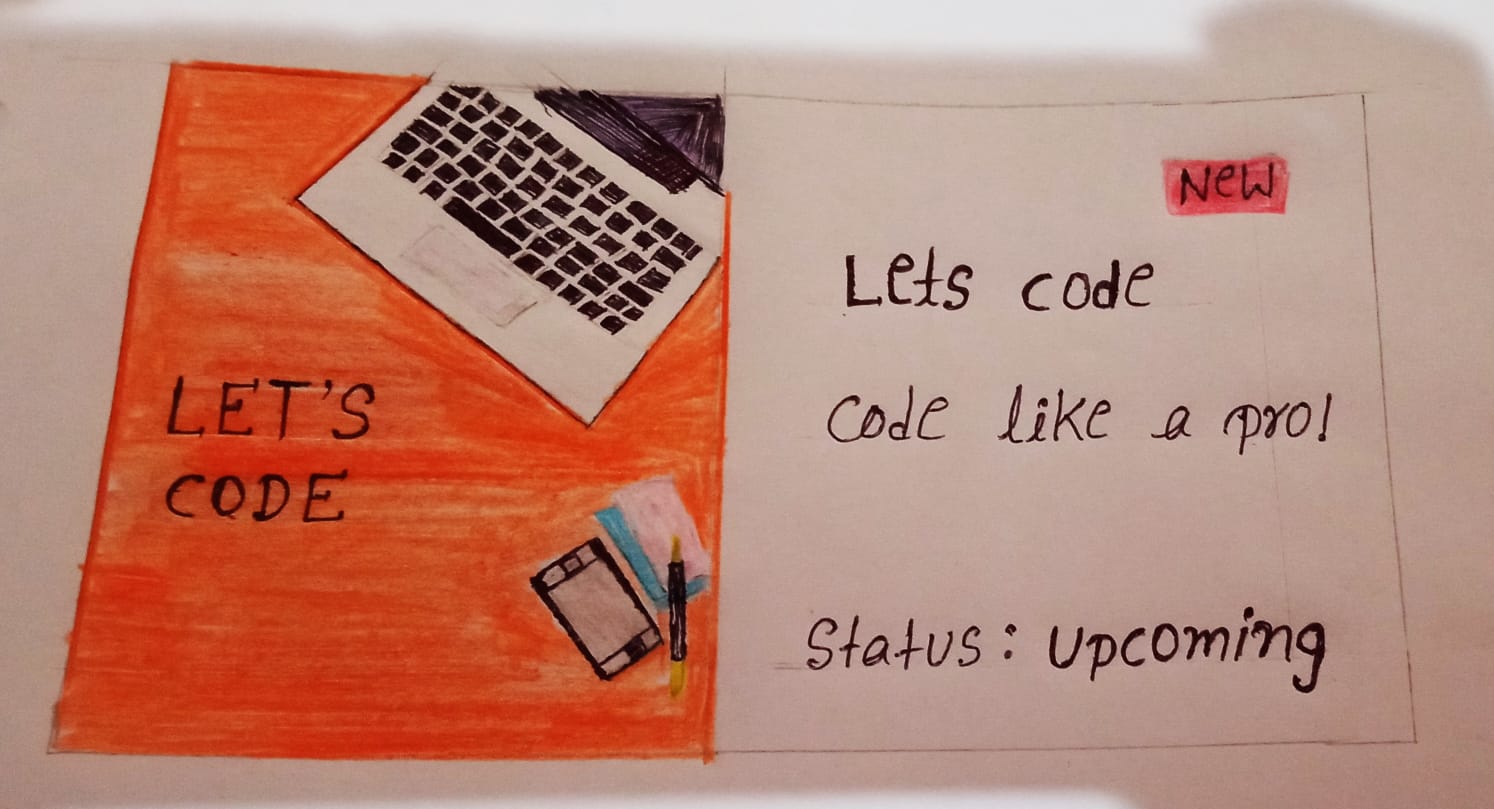 LET'S
CODE
New
Lets code
code like a pro!
Status: Upcoming